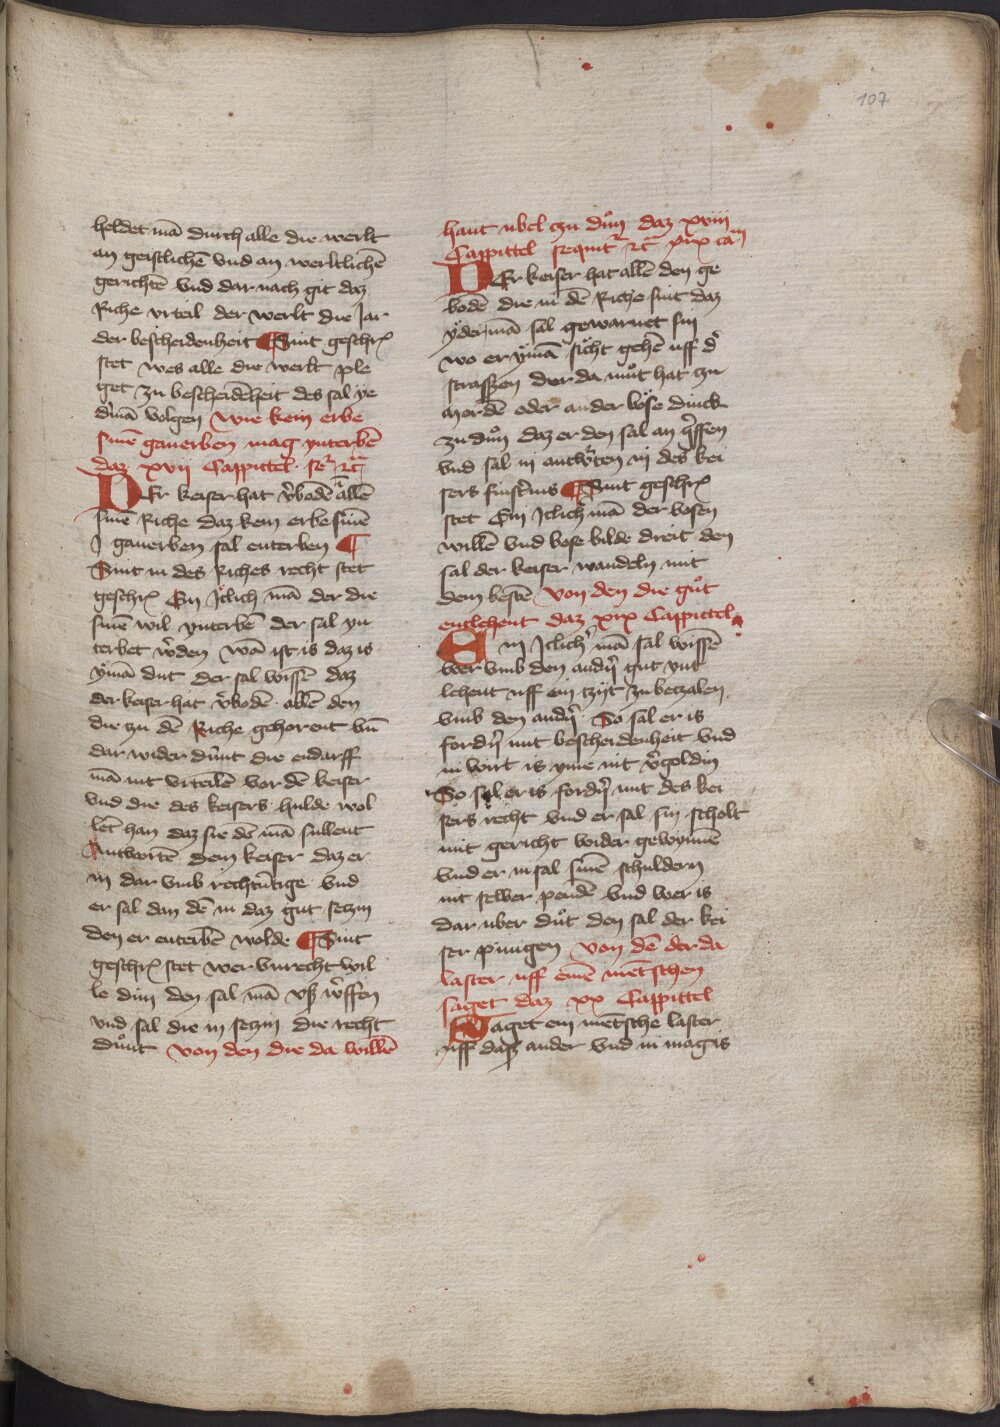 107
heldet mā durch alle die werlt
an geistlichē vnd an werltlichē
gerichtē vnd dar nach git daz
Riche vrteil der werlt die Jar
der bescheidenheit ¶ Sint geschrꝭ
stet wes alle die werlt ple
get zu bescheidēheit des sal ye
dʼmā volgen wie kein erbe
sinē ganerben mag ynterbē
daz xvij Cappittel
DEr keiser hat v̾bodē ī allē
sinē Riche daz kein erbe sinē
ganerben sal enterben ¶
Sint in des Riches recht stet
geschrꝭ Ein Jclich mā der die
sinē wil ynterbē der sal yn
terbet w̾den wā ist is daz is
ymā dut der sal wissē daz
der keiser hat v̾bodē allē den
die zu dē Riche gehorent vn̄
dar wider dūnt die endarff
mā nit vrteilē vor dē keiser
vnd die des keisers hulde wol
lēt han daz sie dē mā sullent
Antwertē dem keiser daz er
in dar vmb rechtūtige vnd
er sal dan dē in daz gut setzin
den er enterbē wolde ¶ Sint
geschrꝭ stet wer vnrecht wil
le din den sal mā vß w̾ffen
vnd sal die in setzin die recht
důnt von den die da willē
hant ubel zu důn daz xviij
Cappittel sequitʳ
DEr keiser hat allē den ge
bodē die in dē Riche sint daz
yderm̄ā sal gewarnet sin
wo er ymā sicht gehē uff d̾
strasszen der da můt hat zu
mordē oder ander böse dinck
zu důn daz er den sal an g̾ffen
vnd sal in antw̾ten in des kei
sers finst̾nis ¶ Sint geschrꝭ
stet Ein Jclich̾ mā der bosen
willē vnd bose bilde dreit den
sal der keiser wandeln mit
dem bestē von den die gůt
entlehent daz xix Cappittel
Ein Jclich̾ mā sal wissē
wer vmb den andʼn gut ynt
lehent uff ein tzijt zu betzalen
vmb den andʼn So sal er is
fordʼn mit bescheidenheit vnd
in wirt is yme nit v̾goldin
So sal er is fordʼn mit des kei
sers recht vnd er sal sin scholt
mit gericht wider gewynnē
vnd er in sal sinē schuldern
nit selber pendē vnd wer is
dar uber důt den sal der kei
ser pinigen von dē der da
laster uff einē mētschen
saget daz xx Cappittel
Saget ein mētsche laster
uff daß ander vnd in mag is